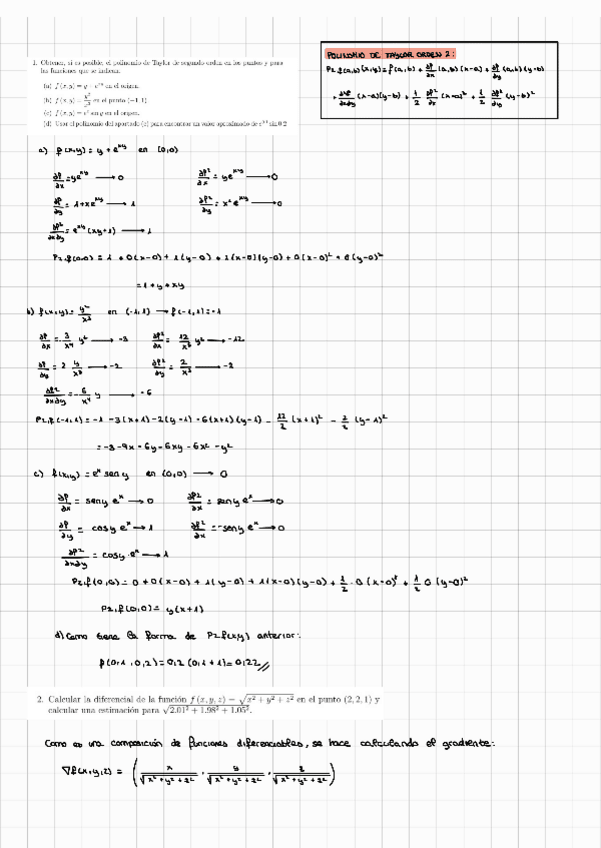 1. Obtener, si es posible, el polinomio de Taylor de segundo orden en los puntos y para
las funciones que se indican.
(a) f(x, y) = y + e^{xy} en el origen.
(b) f(x, y) = y²/x³ en el punto (−1, 1)
(c) f(x, y) = e^x sen y en el origen.
(d) Usar el polinomio del apartado (c) para encontrar un valor aproximado de e^{0.1} sin 0.2
POLINOMIO DE TAYLOR ORDEN 2:
P2,f(a,b)(x,y) = f(a,b) + ∂f/∂x (a,b)(x-a) + ∂f/∂y (a,b)(y-b)
+ ∂²f/∂x∂y (x-a)(y-b) + 1/2 ∂f²/∂x (x-a)² + 1/2 ∂f²/∂y (y-b)²
a) f(x,y) = y + e^{xy} en (0,0)
∂f/∂x = ye^{xy} → 0 ∂f²/∂x = ye^{xy} → 0
∂f/∂y = 1+xe^{xy} → 1 ∂f²/∂y = x²e^{xy} → 0
∂f²/∂x∂y = e^{xy}(xy+1) → 1
P2,f(0,0) = 1 + 0(x-0) + 1(y-0) + 1(x-0)(y-0) + 0(x-0)² + 0(y-0)²
= 1 + y + xy
b) f(x,y) = y²/x³ en (-1,1) → f(-1,1) = -1
∂f/∂x = -3/x⁴ y² → -3 ∂f²/∂x = 12/x⁵ y² → -12
∂f/∂y = 2 y/x³ → -2 ∂f²/∂x = 2/x³ → -2
∂f²/∂x∂y = -6/x⁴ y → -6
P2,f(-1,1) = -1 -3(x+1) -2(y-1) -6(x+1)(y-1) - 12/2 (x+1)² - 2/2 (y-1)²
= -3 -9x -6y -6xy -6x² -y²
c) f(x,y) = e^x sen y en (0,0) → 0
∂f/∂x = sen y e^x → 0 ∂f²/∂x = sen y e^x → 0
∂f/∂y = cos y e^x → 1 ∂f²/∂x = -sen y e^x → 0
∂f²/∂x∂y = cos y · e^x → 1
P2,f(0,0) = 0 + 0(x-0) + 1(y-0) + 1(x-0)(y-0) + 1/2 · 0 (x-0)² + 1/2 0 (y-0)²
P2,f(0,0) = y(x+1)
d) Como tiene la forma de P2f(x,y) anterior:
f(0,1 , 0,2) = 0,2 (0,1 + 1) = 0,22 //
2. Calcular la diferencial de la función f(x, y, z) = √(x² + y² + z²) en el punto (2, 2, 1) y
calcular una estimación para √(2.01² + 1.98² + 1.05²).
Como es una composición de funciones diferenciables, se hace calculando el gradiente:
∇f(x,y,z) = (x/√(x²+y²+z²) , y/√(x²+y²+z²) , z/√(x²+y²+z²))